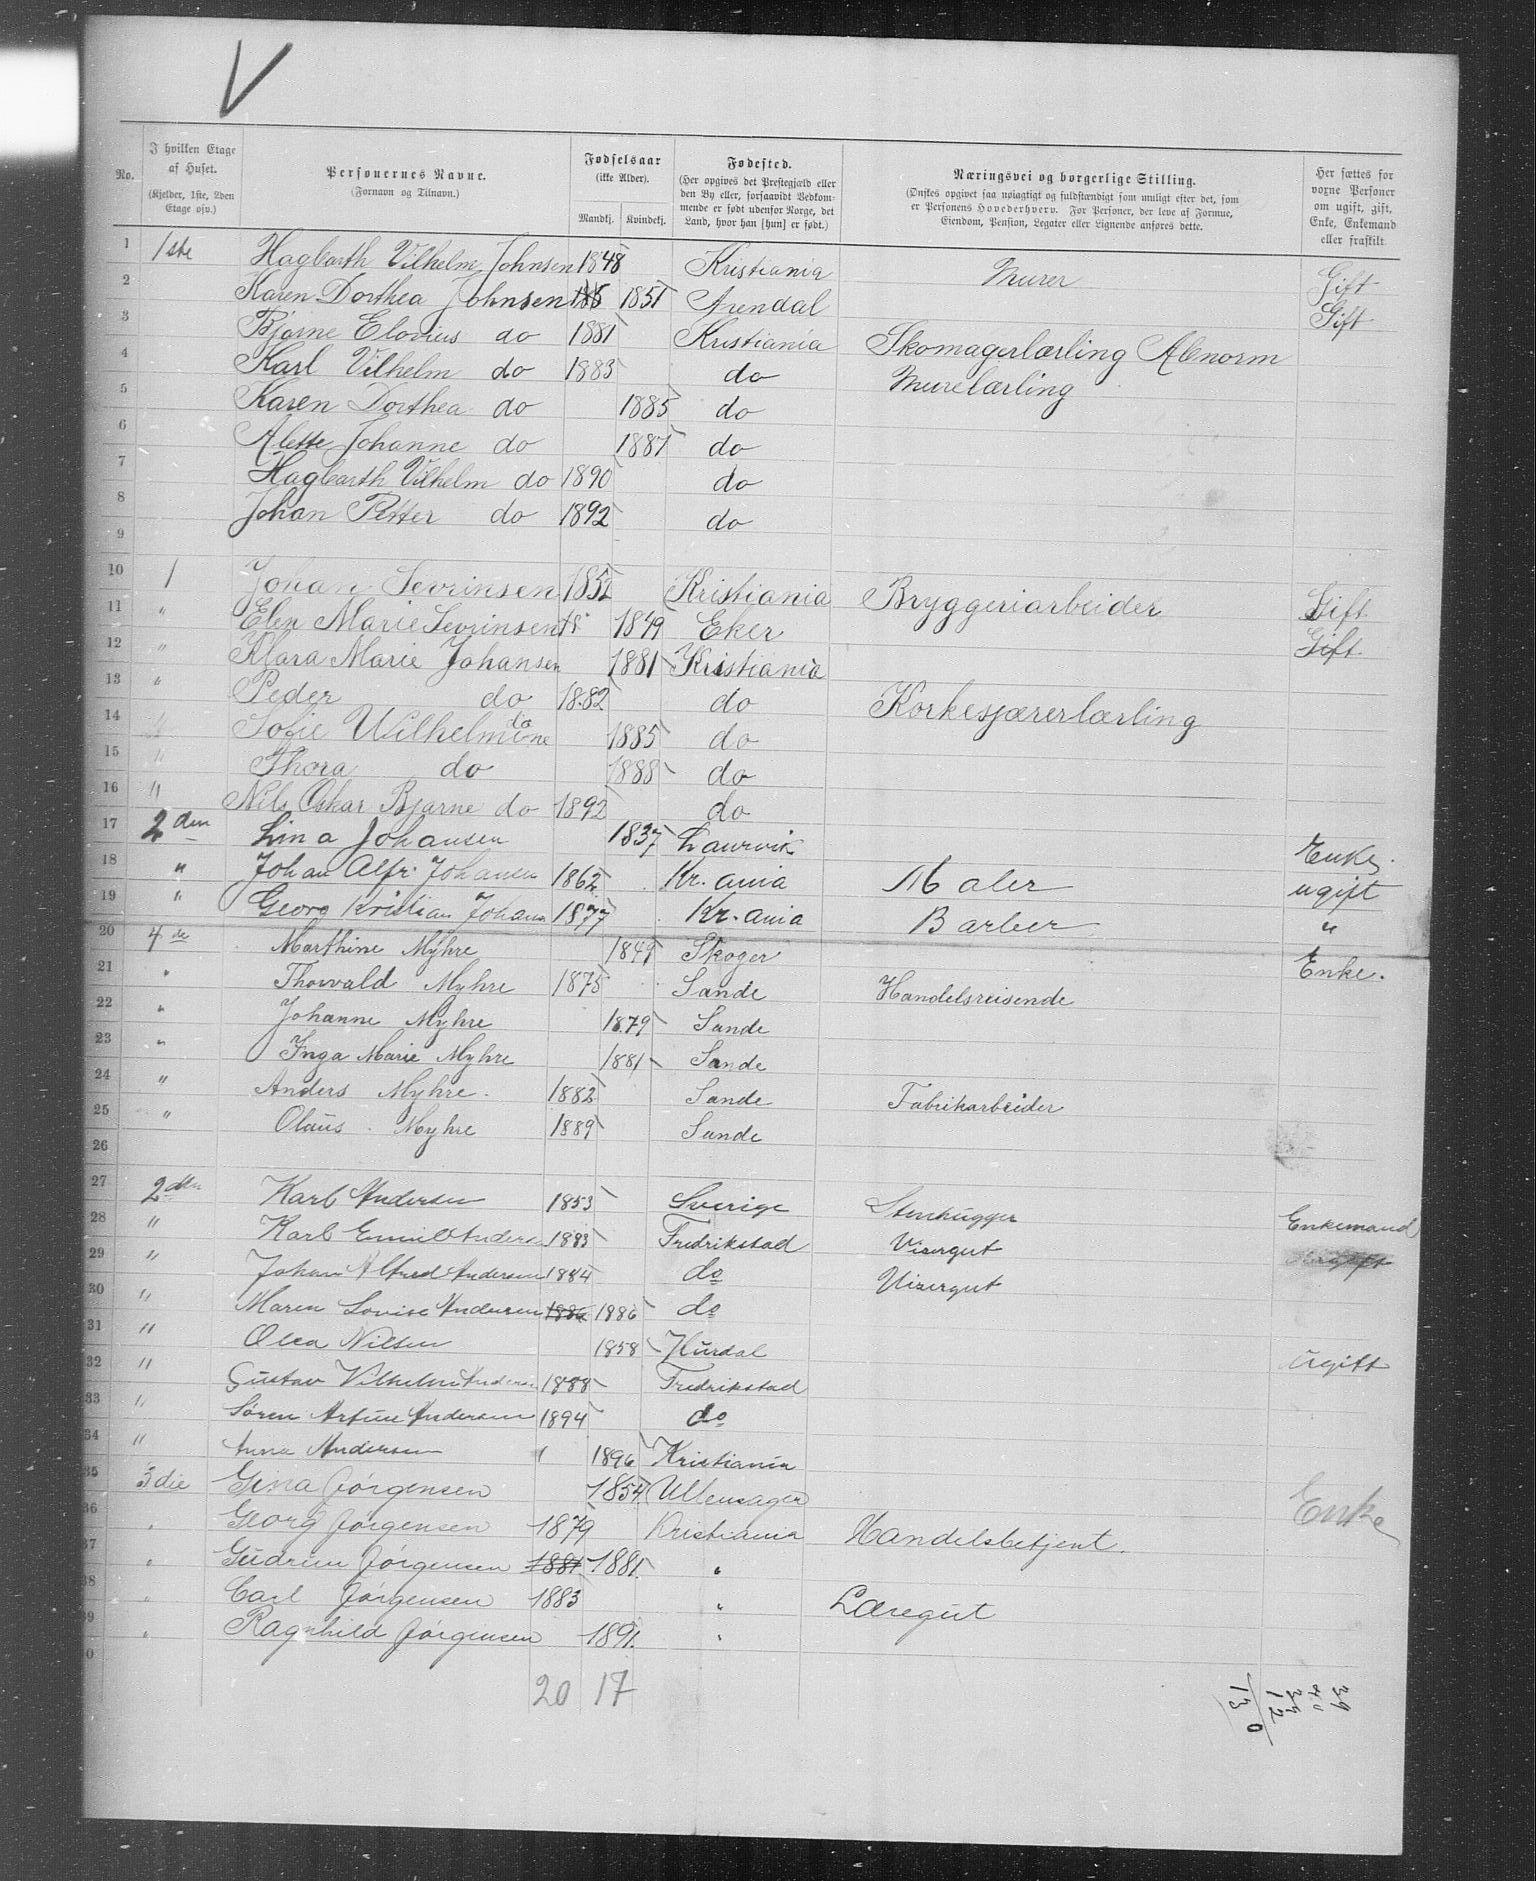 V
No.
I hvilken Etage af Huset. (Kjelder, 1ste, 2den Etage osv.)
Personernes Navne. (Fornavn og Tilnavn.)
Fødselsaar (ikke Alder). Mandkj. Kvindekj.
Fødested. (Her opgives det Prestegjæld eller den By eller, forsaavidt Vedkommende er født udenfor Norge, det Land, hvor han [hun] er født.)
Næringsvei og borgerlige Stilling. (Ønskes opgivet saa nøiagtigt og fuldstændigt som muligt efter det, som er Personens Hovederhverv. For Personer, der leve af Formue, Eiendom, Pension, Legater eller Lignende anføres dette.
Her sættes for voxne Personer om ugift, gift, Enke, Enkemand eller fraskilt.
1 1ste Hagbarth Vilhelm Johnsen 1848 Kristiania Murer Gift
2 Karen Dorthea Johnsen 1851 Arendal Gift
3 Bjarne Elovius do 1881 Kristiania Skomagerlærling Abnorm
4 Karl Vilhelm do 1883 do Murelærling
5 Karen Dorthea do 1885 do
6 Alette Johanne do 1887 do
7 Hagbarth Vilhelm do 1890 do
8 Johan Petter do 1892 do
9
10 1 Johan Sevrinsen 1852 Kristiania Bryggeriarbeider Gift
11 " Elen Marie Sevrinsen 1849 Eker Gift
12 " Klara Marie Johansen 1881 Kristiania
13 " Peder do 1882 do Korkesjærerlærling
14 " Sofie Wilhelmine do 1885 do
15 " Thora do 1888 do
16 " Nils Oskar Bjarne do 1892 do
17 2den Lina Johansen 1837 Laurvik Enke
18 " Johan Alfr. Johansen 1862 Kr.ania Maler ugift
19 " Georg Kristian Johans 1877 Kr.ania Barber "
20 4de Marthine Myhre 1849 Skoger Enke.
21 " Thorvald Myhre 1875 Sande Handelsreisende
22 " Johanne Myhre 1879 Sande
23 " Inga Marie Myhre 1881 Sande
24 " Anders Myhre. 1882 Sande Fabrikarbeider
25 " Olaus Myhre 1889 Sande
26
27 2den Karl Andersen 1853 Sverige Stenhugger Enkemand
28 " Karl Emil Anders 1883 Fredrikstad Visergut
29 " Johan Alfred Andersen 1884 do Visergut
30 " Maren Lovise Andersen 1886 1886 do
31 " Olea Nilsen 1858 Hurdal Ugift
32 " Gustav Vilhelm Anders 1888 Fredrikstad
33 " Søren Artur Andersen 1894 do
34 " Anna Andersen 1896 Kristiania
35 3die Gina Jørgensen 1854 Ullensager Enke
36 " Georg Jørgensen 1879 Kristiania Handelsbetjent.
37 " Gudrun Jørgensen 1881 1881. "
38 " Carl Jørgensen 1883 " Læregut
39 " Ragnhild Jørgensen 1891. "
0
20 17
39
40
39
12
130